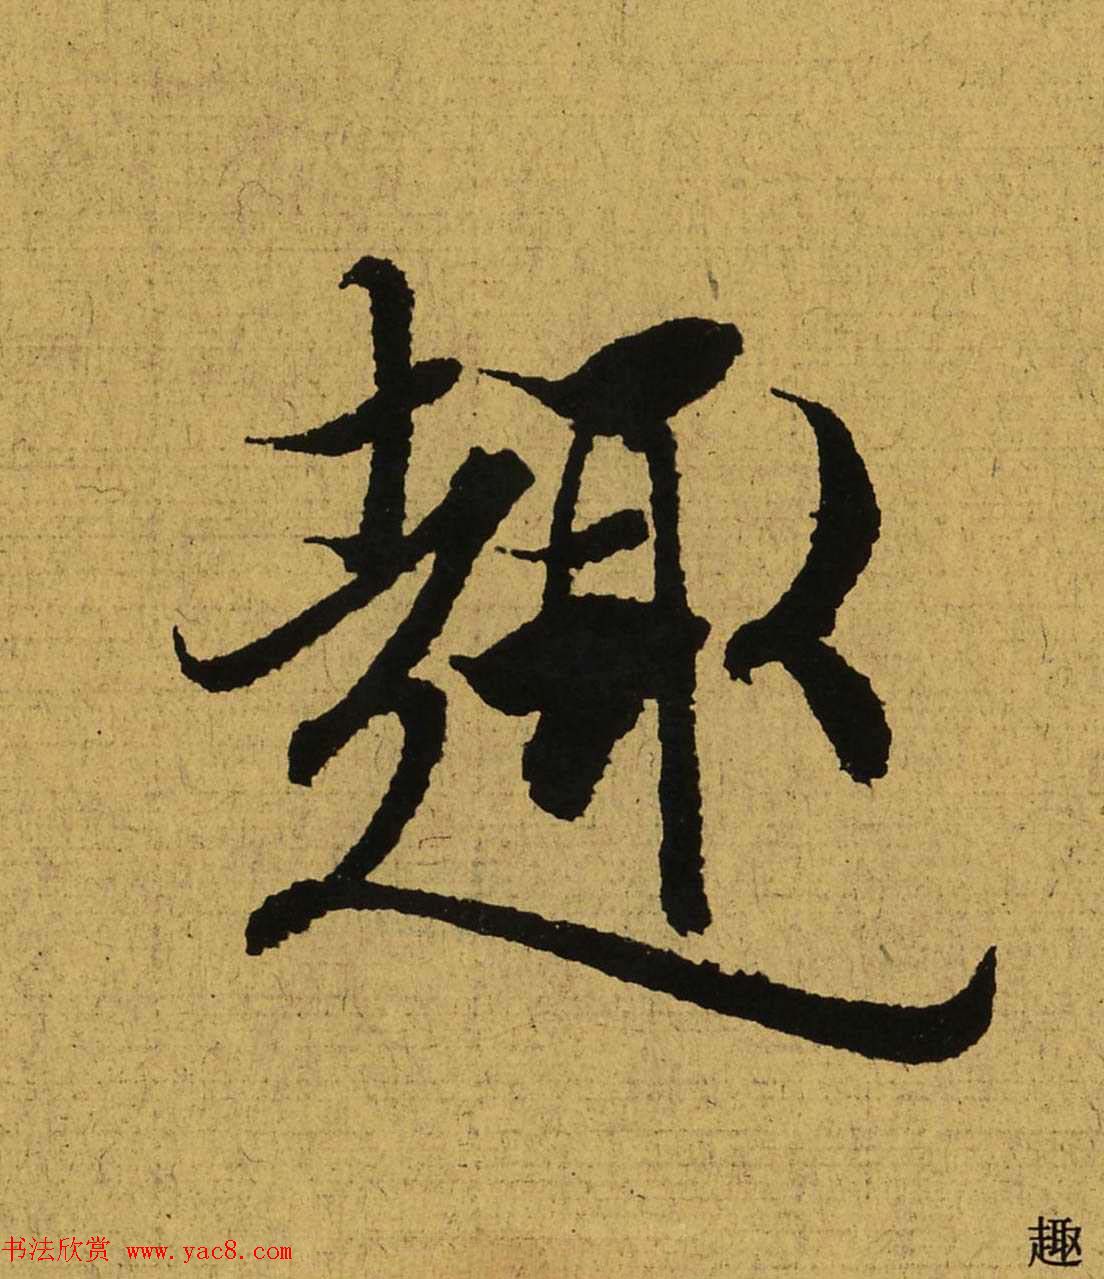 趣
书法欣赏 www.yac8.com
趣